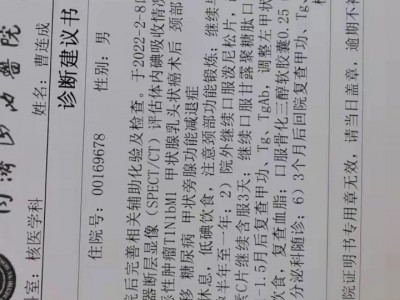 同濟山西醫院
室：核医学科 姓名：曹连成
诊断建议书
住院号：00169678 性别：男
院后完善相关辅助化验及检查。于2022-2-8
器断层显像（SPECT/CT）评估体内碘吸收情况
恶性肿瘤T1N1bM1 甲状腺乳头状癌术后 颈部
移 糖尿病 甲状旁腺功能减退症
休息，低碘饮食，注意颈部功能锻炼；继续
半年至一年；2）院外继续口服泼尼松片，
素C片继续含服3天；继续口服甘露聚糖肽口
-1.5月后复查甲功、Tg、TgAb，调整左甲状
饮食，复查血脂；口服骨化三醇软胶囊0.25
分泌科随诊；6）3个月后回院复查甲功、Tg
院证明书专用章无效，请当日盖章，逾期不